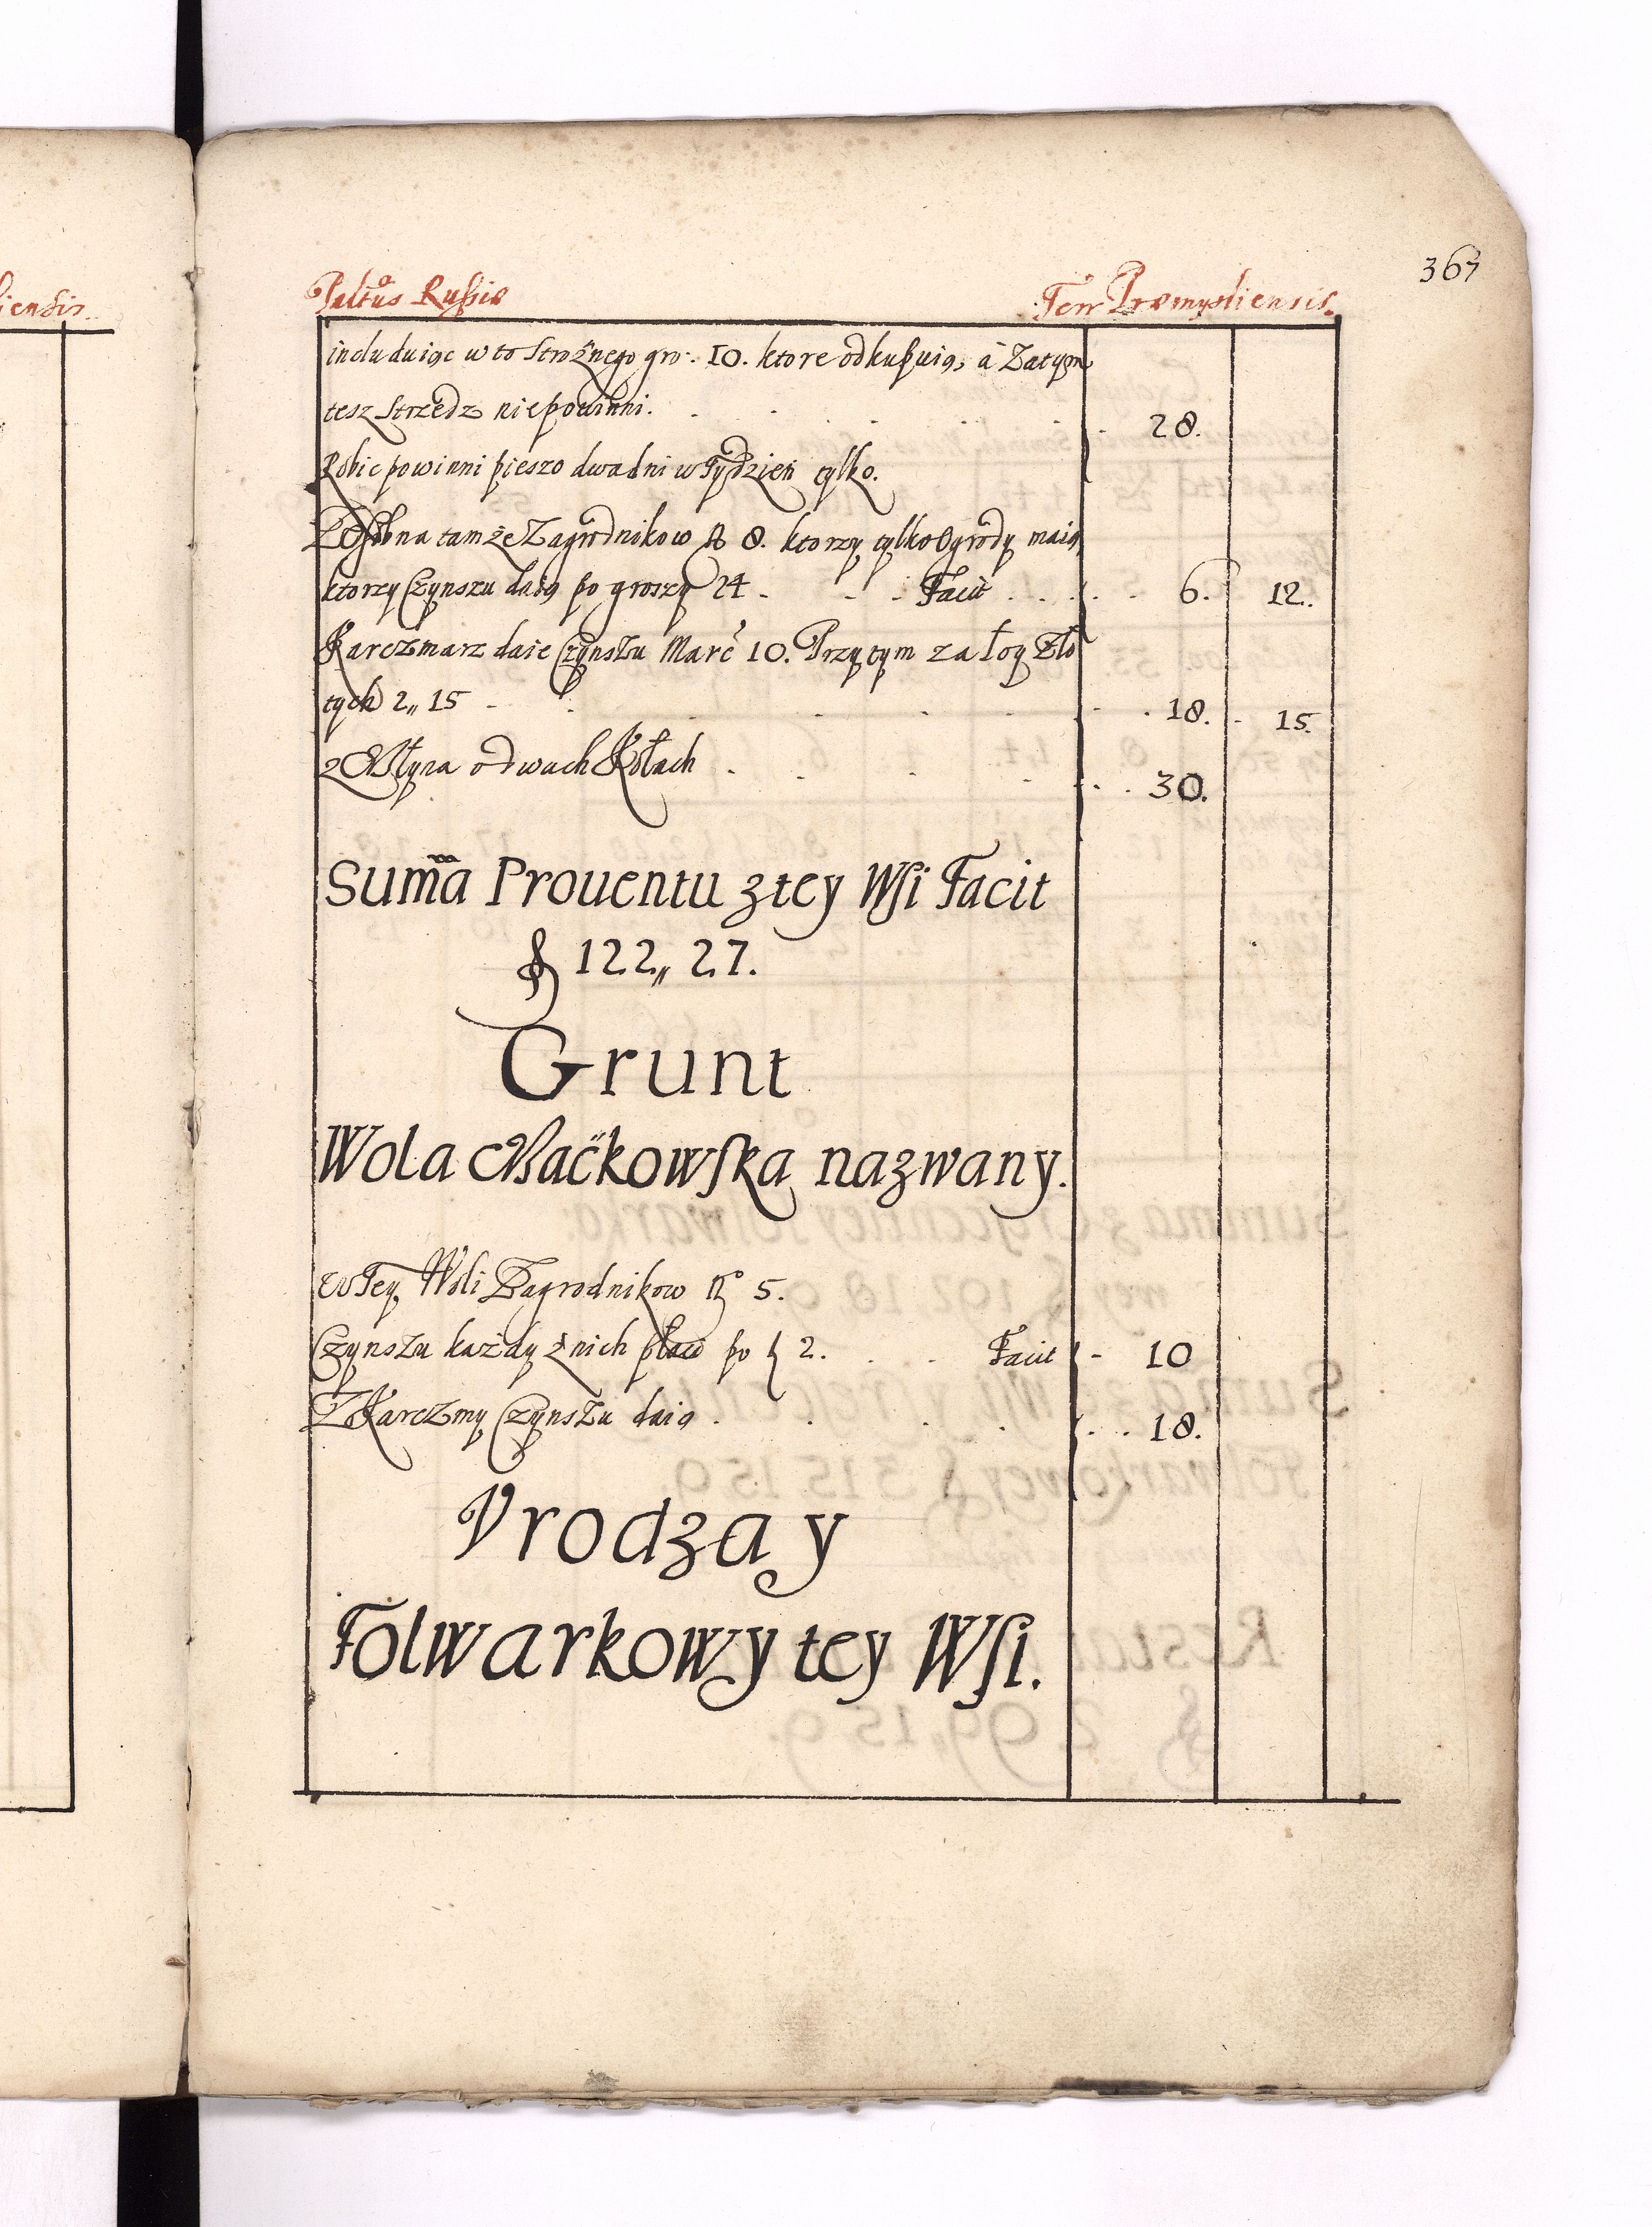 367
Paltus Russiæ Terr Præmysliensis.
includuiąc w to Strożnego gro: 10. ktore odkupuią, à Zatym
tesz Strzedz niepowinni. 28.
Robic powinni pieszo dwadni w Tydzień tylko.
Osobna tamże Zagrodnikow № 8. ktorzy tylko Ogrody maią
ktorzy Czynszu daią po groszy 24 Facit 6. 12.
Karczmarz daie Czynszu Marc 10. Przy tym załog Zło
tych 2,, 15 18. 15.
z Młyna o dwach Kołach 30.
Suma Prouentu z tey Wsi Facit
122,, 27.
Grunt
Wola Maćkowska nazwany.
W Tey Woli Zagrodnikow № 5.
Czynszu każdy z nich płaci po 2. Facit 10
Z Karczmy Czynszu daią 18.
Vrodzay
Folwarkowy tey Wsi.